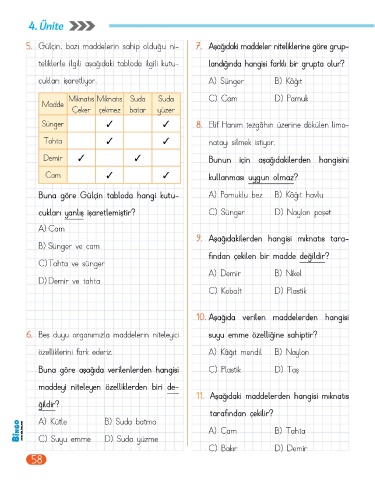 4. Ünite
5. Gülçin, bazı maddelerin sahip olduğu ni-
teliklerle ilgili aşağıdaki tabloda ilgili kutu-
cukları işaretliyor.
Madde Mıknatıs Çeker Mıknatıs çekmez Suda batar Suda yüzer
Sünger ✓ ✓
Tahta ✓ ✓
Demir ✓ ✓
Cam ✓ ✓
Buna göre Gülçin tabloda hangi kutu-
cukları yanlış işaretlemiştir?
A) Cam
B) Sünger ve cam
C) Tahta ve sünger
D) Demir ve tahta
6. Beş duyu organımızla maddelerin niteleyici
özelliklerini fark ederiz.
Buna göre aşağıda verilenlerden hangisi
maddeyi niteleyen özelliklerden biri de-
ğildir?
A) Kütle B) Suda batma
C) Suyu emme D) Suda yüzme
7. Aşağıdaki maddeler niteliklerine göre grup-
landığında hangisi farklı bir grupta olur?
A) Sünger B) Kâğıt
C) Cam D) Pamuk
8. Elif Hanım tezgâhın üzerine dökülen limo-
natayı silmek istiyor.
Bunun için aşağıdakilerden hangisini
kullanması uygun olmaz?
A) Pamuklu bez B) Kâğıt havlu
C) Sünger D) Naylon poşet
9. Aşağıdakilerden hangisi mıknatıs tara-
fından çekilen bir madde değildir?
A) Demir B) Nikel
C) Kobalt D) Plastik
10. Aşağıda verilen maddelerden hangisi
suyu emme özelliğine sahiptir?
A) Kâğıt mendil B) Naylon
C) Plastik D) Taş
11. Aşağıdaki maddelerden hangisi mıknatıs
tarafından çekilir?
A) Cam B) Tahta
C) Bakır D) Demir
BİNGO
58